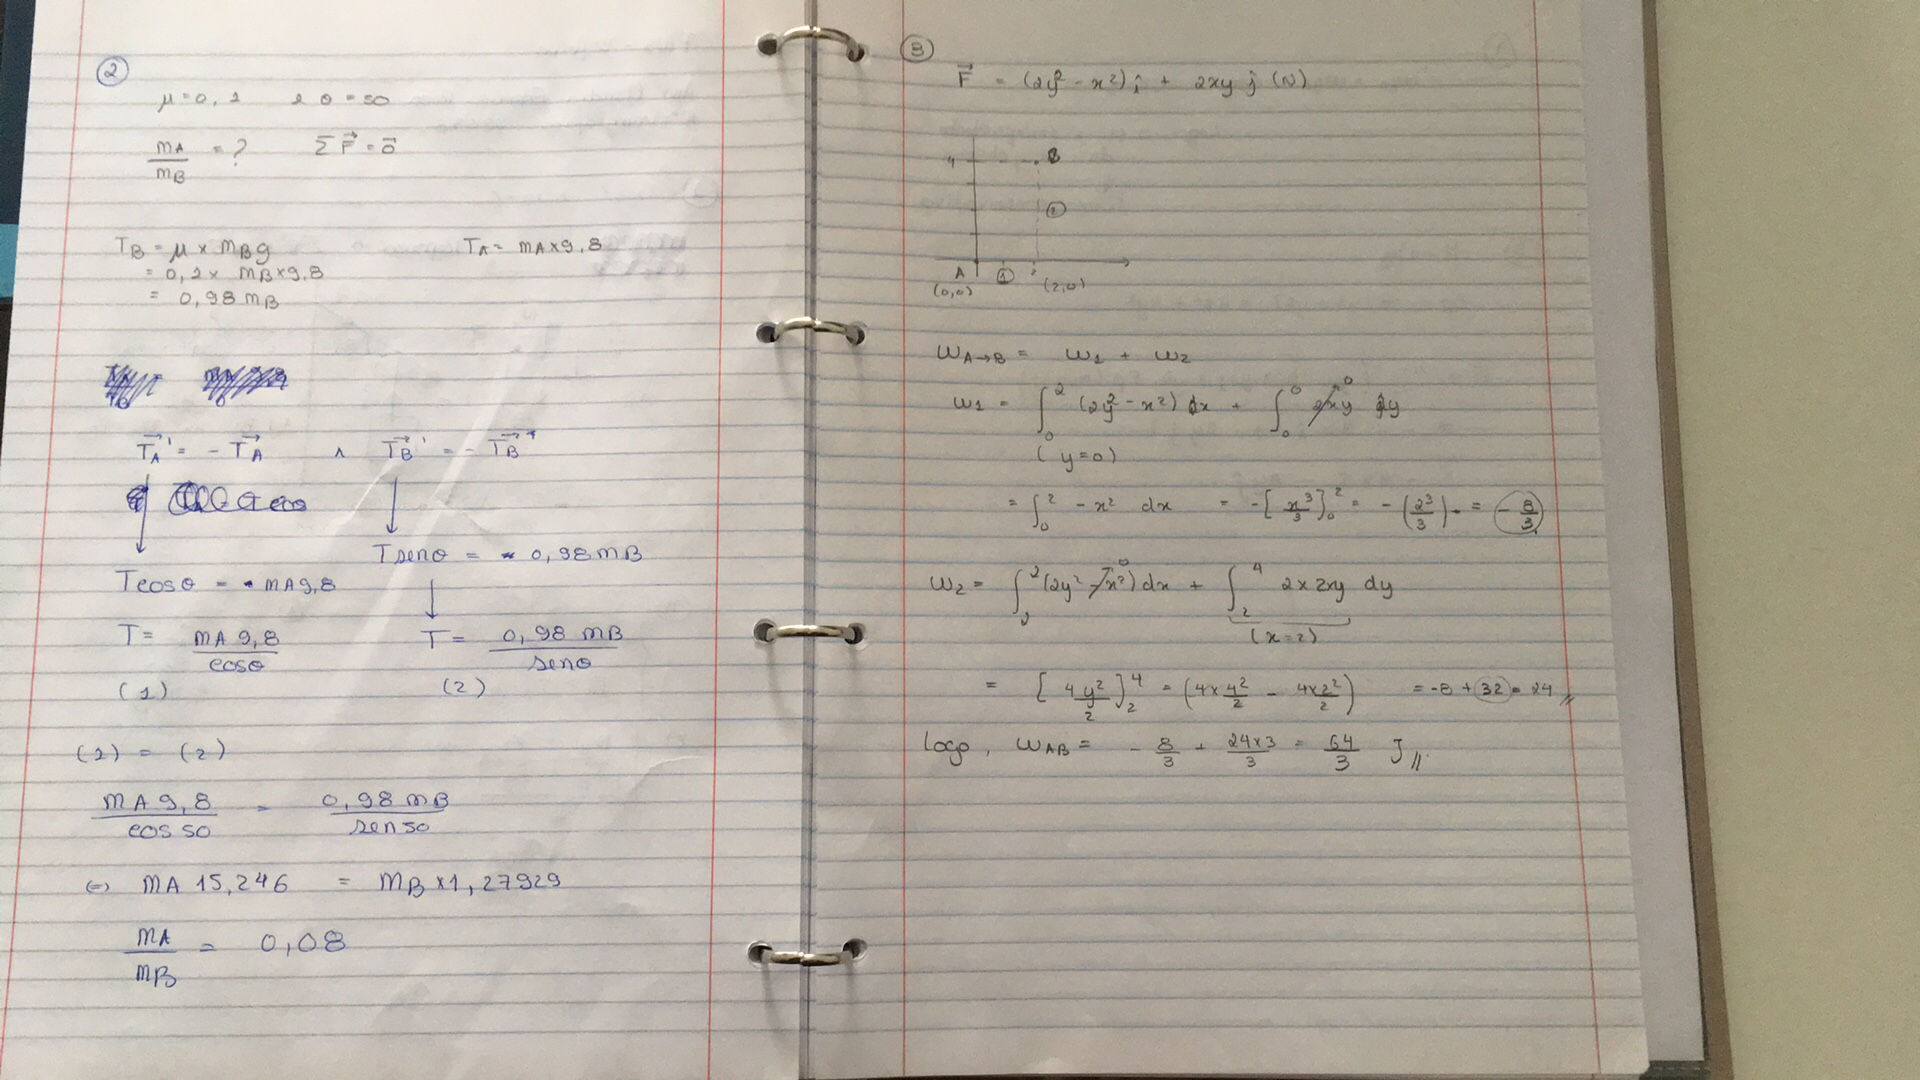 ②
μ = 0,1 e θ = 50
mA/mB = ? Σ F⃗ = 0⃗
TB = μ × mB g TA = mA × 9,8
= 0,1 × mB × 9,8
= 0,98 mB
T⃗A' = - T⃗A ∧ T⃗B' = - T⃗B
T senθ = 0,98 mB
T cosθ = mA 9,8
T = mA 9,8 / cosθ T = 0,98 mB / senθ
(1) (2)
(1) = (2)
mA 9,8 / cos 50 = 0,98 mB / sen 50
⇔ mA 15,246 = mB × 1,27929
mA/mB = 0,08
③
F⃗ = (2y² - x²) î + 2xy ĵ (N)
4 B
②
A ① 2
(0,0) (2,0)
WA→B = W1 + W2
W1 = ∫₀² (2y² - x²) dx + ∫₀⁰ 2xy dy 0
(y=0)
= ∫₀² - x² dx = -[x³/3]₀² = -(2³/3) = -8/3
W2 = ∫₂² (2y² - x²) dx 0 + ∫₂⁴ 2×2xy dy
(x=2)
= [4y²/2]₂⁴ = (4×4²/2 - 4×2²/2) = -8 + 32 = 24 //
Logo, WAB = -8/3 + 24×3/3 = 64/3 J //